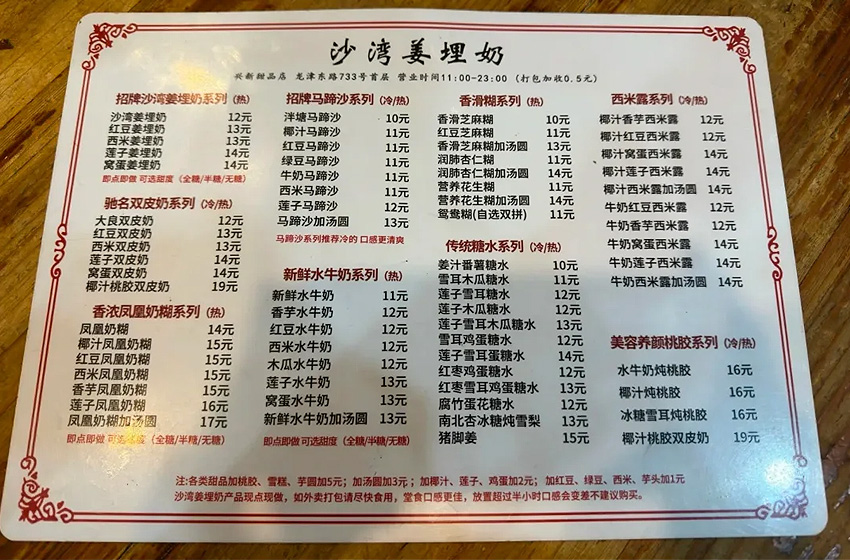 沙湾姜埋奶
兴新甜品店 龙津东路733号首层 营业时间11:00-23:00 (打包加收0.5元)
招牌沙湾姜埋奶系列(热)
沙湾姜埋奶 12元
红豆姜埋奶 13元
西米姜埋奶 13元
莲子姜埋奶 14元
窝蛋姜埋奶 14元
即点即做 可选甜度 (全糖/半糖/无糖)
驰名双皮奶系列(冷/热)
大良双皮奶 12元
红豆双皮奶 13元
西米双皮奶 13元
莲子双皮奶 14元
窝蛋双皮奶 14元
椰汁桃胶双皮奶 19元
香浓凤凰奶糊系列(热)
凤凰奶糊 14元
椰汁凤凰奶糊 15元
红豆凤凰奶糊 15元
西米凤凰奶糊 15元
香芋凤凰奶糊 15元
莲子凤凰奶糊 16元
凤凰奶糊加汤圆 17元
即点即做 可选甜度 (全糖/半糖/无糖)
招牌马蹄沙系列(冷/热)
泮塘马蹄沙 10元
椰汁马蹄沙 11元
红豆马蹄沙 11元
绿豆马蹄沙 11元
牛奶马蹄沙 11元
西米马蹄沙 11元
莲子马蹄沙 12元
马蹄沙加汤圆 13元
马蹄沙系列推荐冷的 口感更清爽
新鲜水牛奶系列(热)
新鲜水牛奶 11元
香芋水牛奶 12元
红豆水牛奶 12元
西米水牛奶 12元
木瓜水牛奶 12元
莲子水牛奶 13元
窝蛋水牛奶 13元
新鲜水牛奶加汤圆 13元
即点即做 可选甜度 (全糖/半糖/无糖)
香滑糊系列(热)
香滑芝麻糊 10元
红豆芝麻糊 11元
香滑芝麻糊加汤圆 13元
润肺杏仁糊 11元
润肺杏仁糊加汤圆 14元
营养花生糊 11元
营养花生糊加汤圆 14元
鸳鸯糊(自选双拼) 11元
传统糖水系列(冷/热)
姜汁番薯糖水 10元
雪耳木瓜糖水 11元
莲子雪耳糖水 12元
莲子木瓜糖水 12元
莲子雪耳木瓜糖水 13元
雪耳鸡蛋糖水 12元
莲子雪耳鸡蛋糖水 14元
红枣鸡蛋糖水 12元
红枣雪耳鸡蛋糖水 13元
腐竹蛋花糖水 12元
南北杏冰糖炖雪梨 13元
猪脚姜 15元
西米露系列(冷/热)
椰汁香芋西米露 12元
椰汁红豆西米露 12元
椰汁窝蛋西米露 14元
椰汁莲子西米露 14元
椰汁西米露加汤圆 14元
牛奶红豆西米露 12元
牛奶香芋西米露 12元
牛奶窝蛋西米露 14元
牛奶莲子西米露 14元
牛奶西米露加汤圆 14元
美容养颜桃胶系列(冷/热)
水牛奶炖桃胶 16元
椰汁炖桃胶 16元
冰糖雪耳炖桃胶 16元
椰汁桃胶双皮奶 19元
注:各类甜品加桃胶、雪糕、芋圆加5元; 加汤圆加3元; 加椰汁、莲子、鸡蛋加2元; 加红豆、绿豆、西米、芋头加1元
沙湾姜埋奶产品现点现做，如外卖打包请尽快食用，堂食口感更佳，放置超过半小时口感会变差不建议购买。